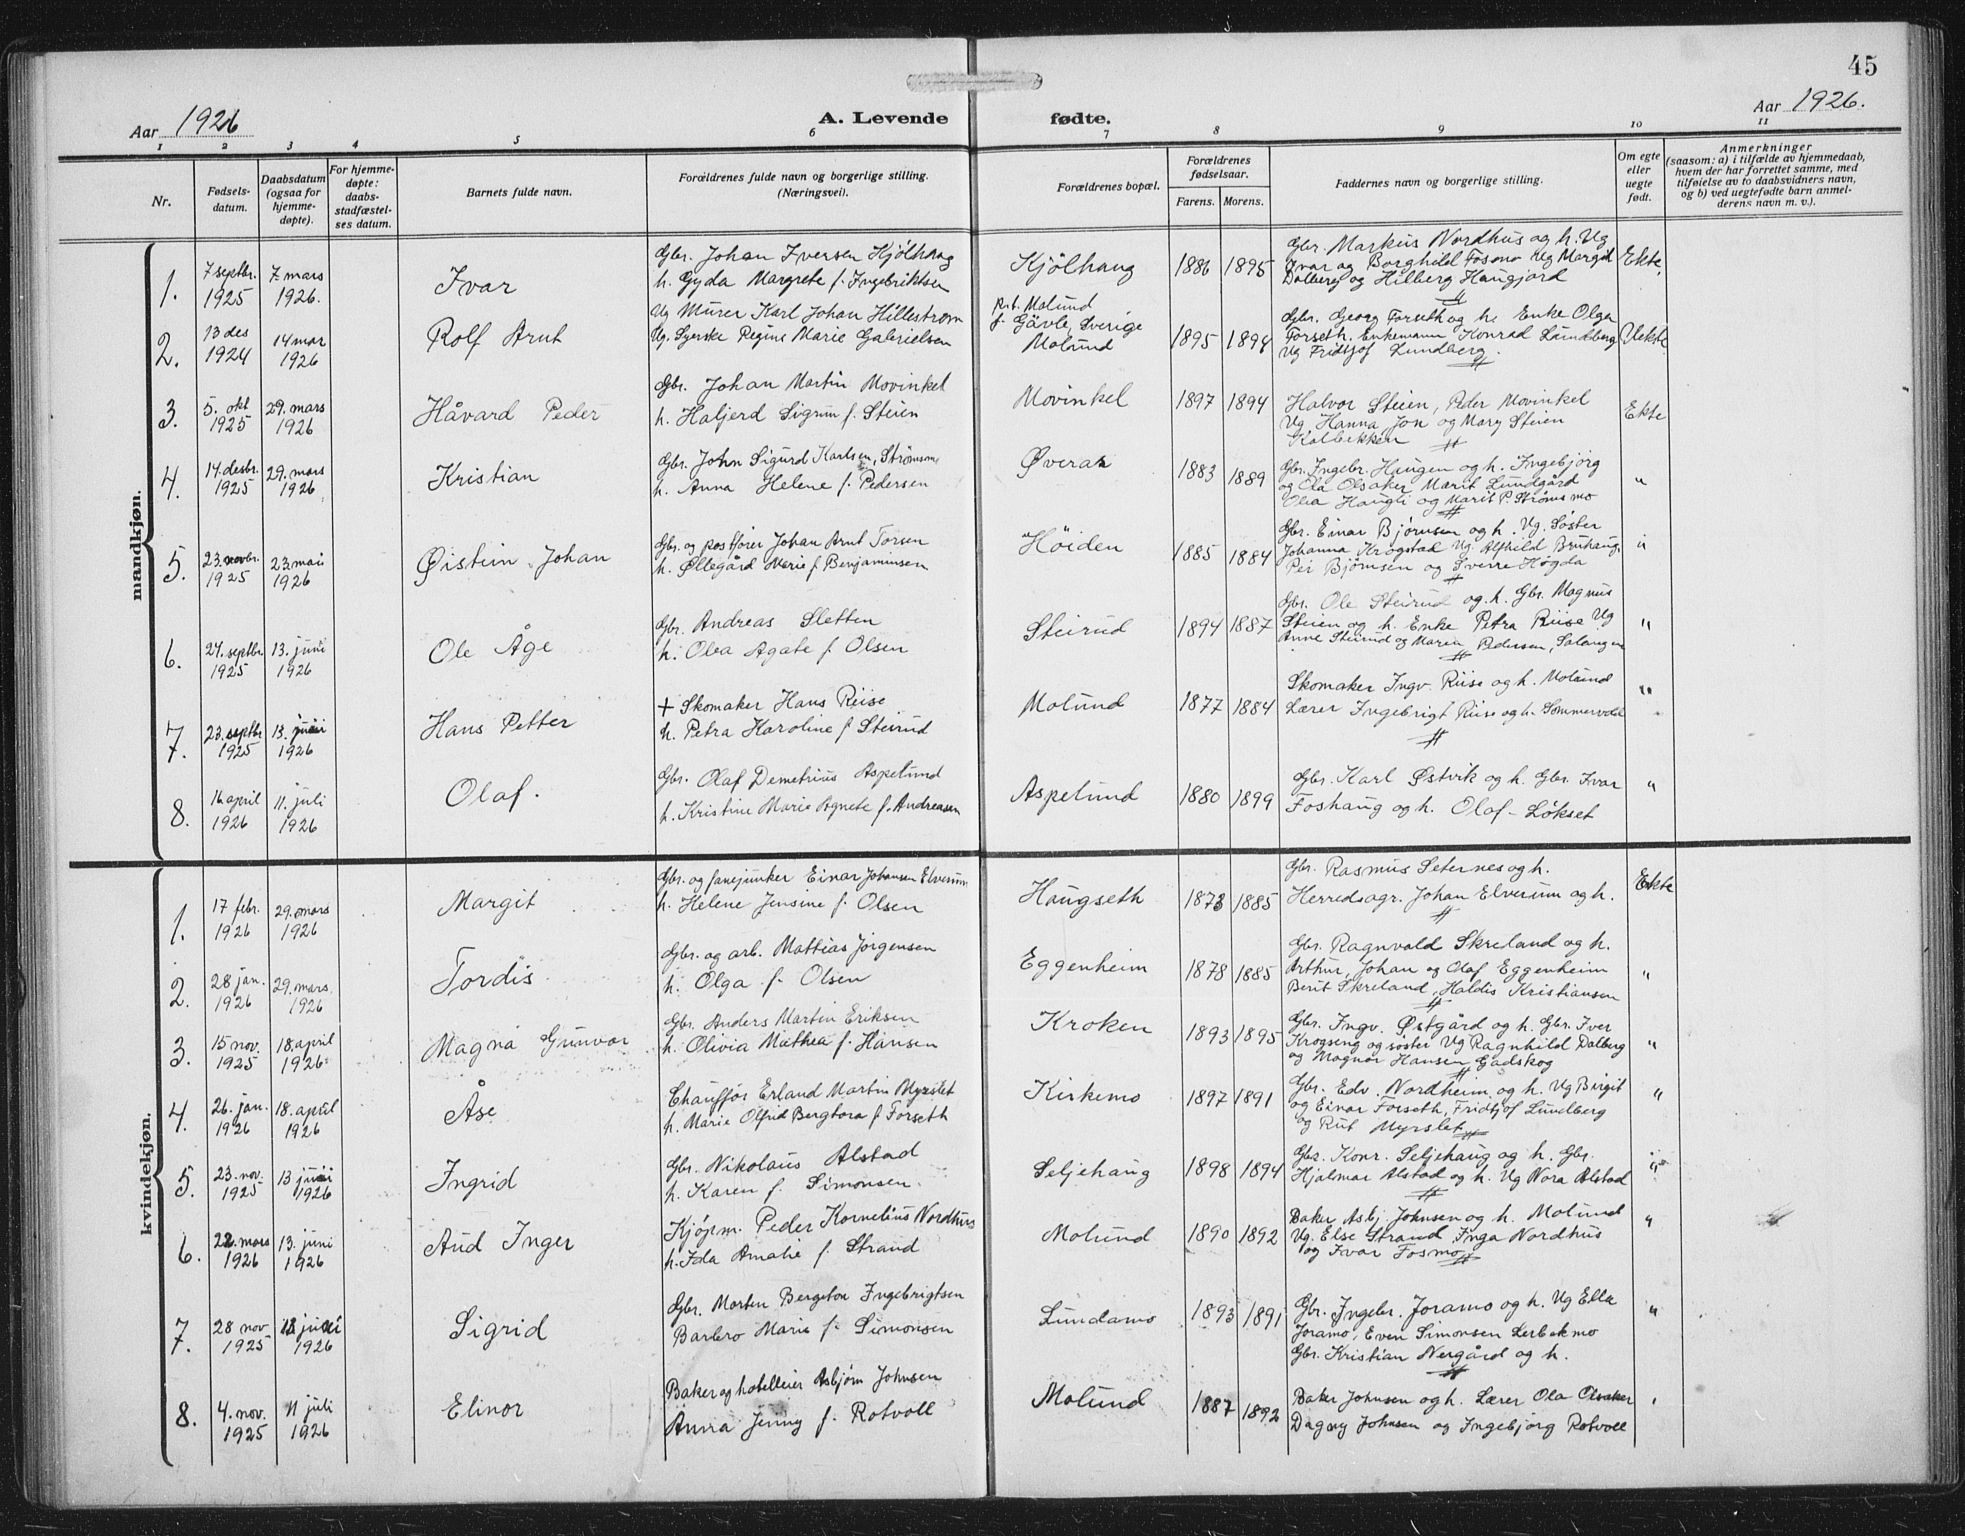 45
Aar 1926
A. Levende fødte.
Aar 1926.
1 2 3 4 5 6 7 8 9 10 11
Nr.
Fødsels-
datum.
Daabsdatum
(ogsaa for
hjemme-
døpte).
For hjemme-
døpte:
daabs-
stadfæstel-
ses datum.
Barnets fulde navn.
Forældrenes fulde navn og borgerlige stilling.
(Næringsvei).
Forældrenes bopæl.
Forældrenes
fødselsaar.
Farens. Morens.
Faddernes navn og borgerlige stilling.
Om egte
eller
uegte
født.
Anmerkninger
(saasom: a) i tilfælde av hjemmedaab,
hvem der har forrettet samme, med
tilføielse av to daabsvidners navn,
og b) ved uegtefødte barn anmel-
derens navn m. v.).
mandkjøn.
1.
7 septbr.
1925
7 mars
1926.
Ivar
Gbr. Johan Iversen Kjölhaug
h. Gyda Margrete f. Ingebriktsen
Kjölhaug
1886 1895
Gbr. Markus Nordhus og h. Ug
Ivar og Borghild Fosmo Ug Margit
Dalberg og Hilberg Haugjord
Ekte.
2.
13 des
1924
14 mar
1926
Rolf Arnt
Ug Murer Karl Johan Hillestrøm
Ug. Syerske Regine Marie Gabrielsen
f. Gävle, Sverige
Molund
1895 1894
Gbr. Georg Forseth og h. Enke Olga
Forseth. Enkemann Konrad Lundberg
Ug Fridtjof Lundberg.
Uekte.
3.
5. okt
1925
29. mars
1926
Håvard Peder
Gbr. Johan Martin Movinkel
h. Haljerd Sigrun f. Steien
Movinkel
1897 1894
Halvor Steien, Peder Movinkel
Ug Hanna, Jon og Mary Steien
Kalbekken
Ekte
4.
14. desbr.
1925
29. mars
1926
Kristian
Gbr. John Sigurd Karlsen, Strömsmo
h. Anna Helene f. Pedersen
1883 1889
Gbr. Ingebr. Haugen og h. Ingebjörg
og Ola Olsaker Marit Lundgård
Olea Haugli og Marit P. Ströms mo
"
5.
23. novbr.
1925
23. mai
1926
Øistein Johan
Gbr. og postförer Johan Arnt Torsen
h. Øllegård Marie f. Benjaminsen
Höiden
1885 1884
Gbr. Einar Bjørnsen og h. Ug. Söster
Johanna Krogstad Ug. Alfhild Bruhaug,
Per Bjørnsen og Sverre Högda
"
6.
27. septbr.
1925
13. juni
1926
Ole Åge
Gbr. Andreas Sletten
h. Olea Agate f. Olsen
Steirud
1894 1887
Gbr. Ole Steirud og h. Gbr. Magnus
Steien og h. Enke Petra Riise Ug
Anne Steirud og Marie Pedersen, Salangen
"
7.
23. septbr
1925
13. juni
1926
Hans Petter
+ Skomaker Hans Riise
h. Petra Karoline f. Steirud
Molund
1877 1884
Skomaker Ingv. Riise og h. Molund
Lærer Ingebrigt Riise og h. Sommervold
"
8.
16 april
1926
11. juli
1926
Olaf.
Gbr. Olaf Demetrius Aspelund
h. Kristine Marie Agnete f. Andreasen
Aspelund
1880 1899
Gbr. Karl Østvik og h. Gbr. Ivar
Foshaug og h. Olaf Lökset
"
kvindekjøn.
1.
17 febr.
1926
29. mars
1926
Margit
Gbr. og fanejunker Einar Johansen Elverum
h. Helene Jensine f. Olsen
Haugseth
1873 1885
Gbr. Rasmus Seternes og h.
Herredsagr. Johan Elverum og h.
Ekte
2.
28 jan.
1926
29. mars.
1926
Tordis
Gbr. og arb. Mattias Jörgensen
h. Olga f. Olsen
Eggenheim
1878 1885
Gbr. Ragnvald Skreland og h.
Arthur, Johan og Olaf Eggenheim
Berit Skreland, Haldis Kristiansen
"
3.
15 nov.
1925
18. april
1926
Magna Gunvor
Gbr. Anders Martin Eriksen
h. Olivia Mathea f. Hansen
Kroken
1893 1895
Gbr. Ingv. Østgård og h. Gbr. Iver
Krogseng og söster Ug Ragnhild Dalberg
og Magnor Hansen Gadskog
"
4.
26. jan.
1926
18. april
1926
Åse
Chaufför Erland Martin Myrslet
h. Marie Olfrid Bergtora f Forseth
Kirkemo
1897 1891
Gbr. Edv. Nordheim og h. Ug Birgit
og Einar Forseth, Fridtjof Lundberg
og Rut Myrslet
"
5.
23. nov.
1925
13 juni
1926
Ingrid
Gbr. Nikolaus Alstad
h. Karen f. Simonsen.
Seljehaug
1898 1894
Gbr. Konr. Seljehaug og h. Gbr.
Hjalmar Alstad og h. Ug Nora Alstad
"
6.
22. mars
1926
13. juni
1926
Aud Inger
Kjöpm. Peder Kornelius Nordhus
h. Ida Amalie f. Strand
Molund
1890 1892
Baker Asbj. Johnsen og h. Molund
Ug. Else Strand, Inga Nordhus
og Ivar Fosmo
"
7.
28 nov.
1925
13 juni
1926
Sigrid
Gbr. Morten Bergeton Ingebrigtsen
Barbro Marie f. Simonsen
Lundamo
1893 1891
Gbr. Ingebr. Joramo og h. Ug Ella
Joramo, Even Simonsen Lerbekmo
Gbr. Kristian Nergård og h.
"
8.
4. nov.
1925
11 juli
1926
Elinor
Baker og hotelleier Asbjørn Johnsen
Anna Jenny f. Rotvoll
Molund
1887 1892
Baker Johnsen og h. Lærer Ola Olsaker
Dagny Johnsen og Ingebjörg Rotvoll
"